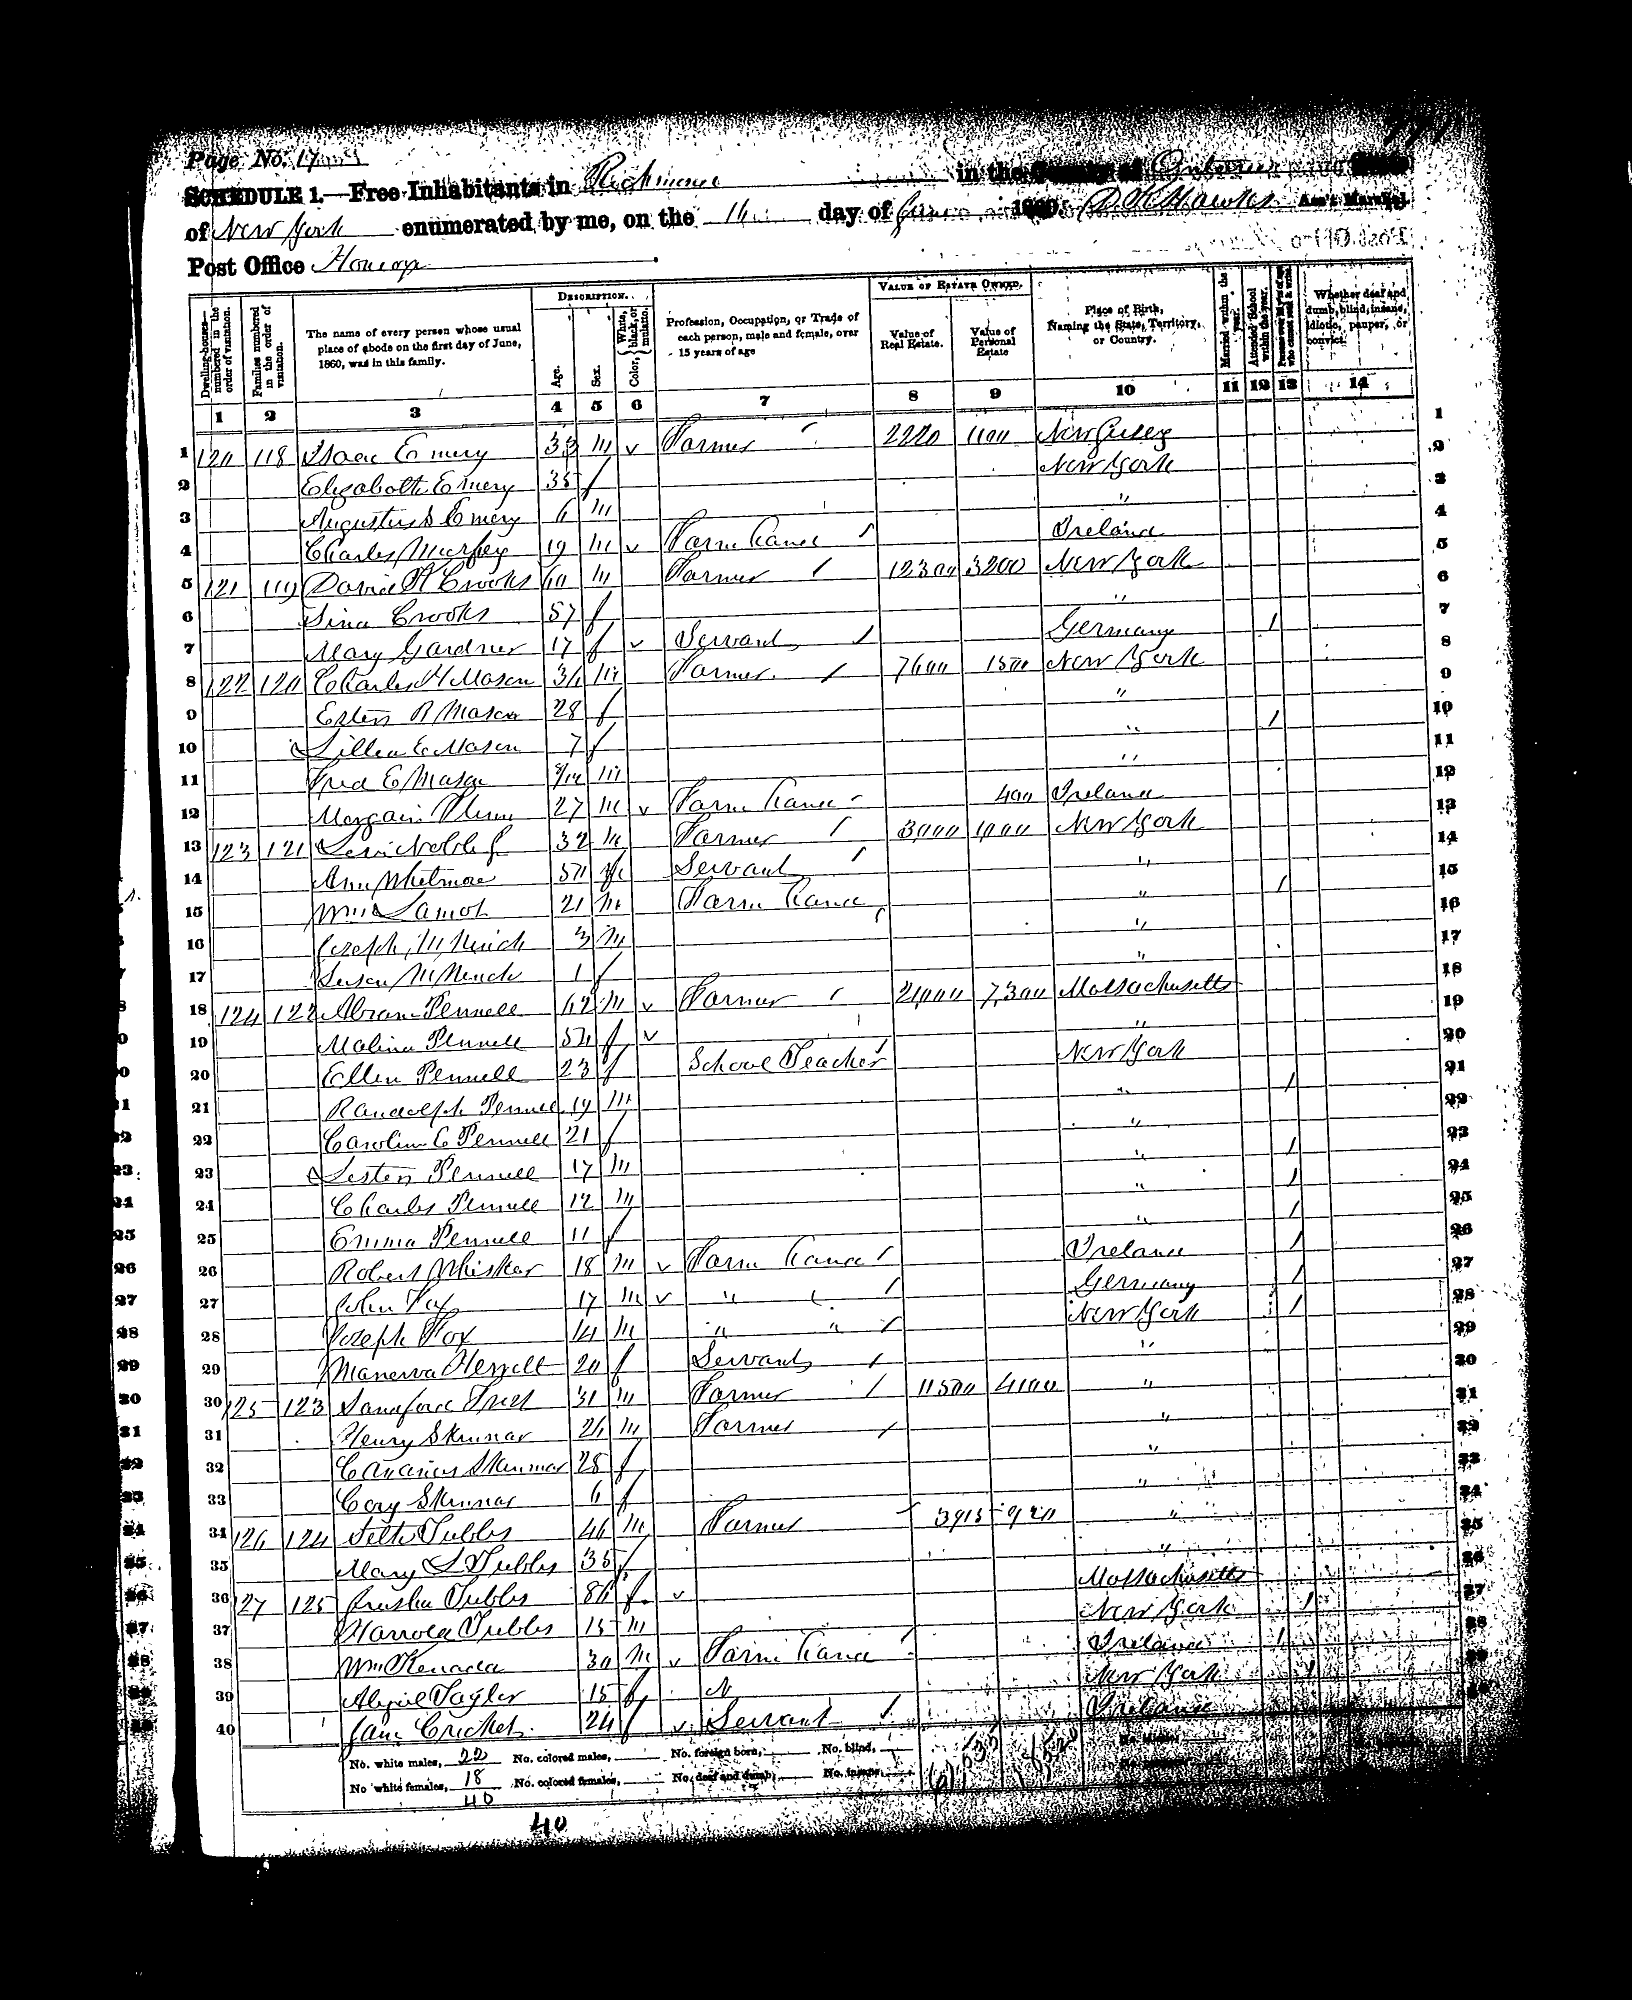 Page No. 17
SCHEDULE 1.—Free Inhabitants in Richmond in the County of Ontario State
of New York enumerated by me, on the 16 day of June 1860. Ass't Marshal.
Post Office Honeoye
Dwelling-houses—numbered in the order of visitation.
Families numbered in the order of visitation.
The name of every person whose usual place of abode on the first day of June, 1860, was in this family.
DESCRIPTION.
Age.
Sex.
Color, White, black, or mulatto.
Profession, Occupation, or Trade of each person, male and female, over 15 years of age
VALUE OF ESTATE OWNED.
Value of Real Estate.
Value of Personal Estate
Place of Birth, Naming the State, Territory, or Country.
Married within the year.
Attended School within the year.
Whether deaf and dumb, blind, insane, idiotic, pauper, or convict.
1 2 3 4 5 6 7 8 9 10 11 12 13 14
1 120 118 Isaac Emery 33 m v Farmer 2220 1100 New Jersey
2 Elizabeth Emery 35 f New York
3 Augustus S Emery 6 m "
4 Charles Murfey 19 m v Farm hand / Ireland
5 121 119 David H Crooks 60 m Farmer / 12300 3200 New York
6 Sina Crooks 57 f "
7 Mary Gardner 17 f v Servant / Germany /
8 122 120 Charles H Mason 36 m Farmer / 7600 1500 New York
9 R Mason 28 f "
10 Lillian E Mason 7 f " /
11 Fred E Mason m "
12 27 m v Farm hand 400 Ireland
13 123 121 Levi 32 m Farmer / 3000 1000 New York
14 Ann Whitmore 50 f Servant / "
15 Wm Lamot 21 m Farm hand " /
16 Joseph 3 m "
17 Susan 1 f "
18 124 122 Abram Pennell 62 m v Farmer 21000 7300 Massachusetts
19 Malina Pennell 50 f v "
20 Ellen Pennell 23 f School Teacher / New York
21 Randolph Pennell 19 m " /
22 Caroline C Pennell 21 f "
23 Pennell 17 m " /
24 Charles Pennell 12 m " /
25 Emma Pennell 11 f " /
26 Robert Whisker 18 m v Farm hand / Ireland /
27 John Fox 17 m v " " / Germany /
28 Joseph Fox 14 m " " / New York /
29 Manerva 20 f Servant / "
30 125 123 31 m Farmer / 11500 4100 "
31 Henry Skinnar 26 m Farmer / "
32 Skinnar 28 f "
33 Cory Skinnar 6 f "
34 126 124 Seth Tubbs 46 m Farmer 3915 920 "
35 Mary L Tubbs 35 f "
36 127 125 Tubbs 86 f v Massachusetts
37 Tubbs 15 m New York /
38 Wm 30 m v Farm hand Ireland
39 Abigail Taylor 15 f New York /
40 Jane Cricket 24 f v Servant / Ireland
No. white males, 22 No. colored males, No. foreign born, No. blind,
No white females, 18 No. colored females, No. deaf and dumb, No. insane,
40
40